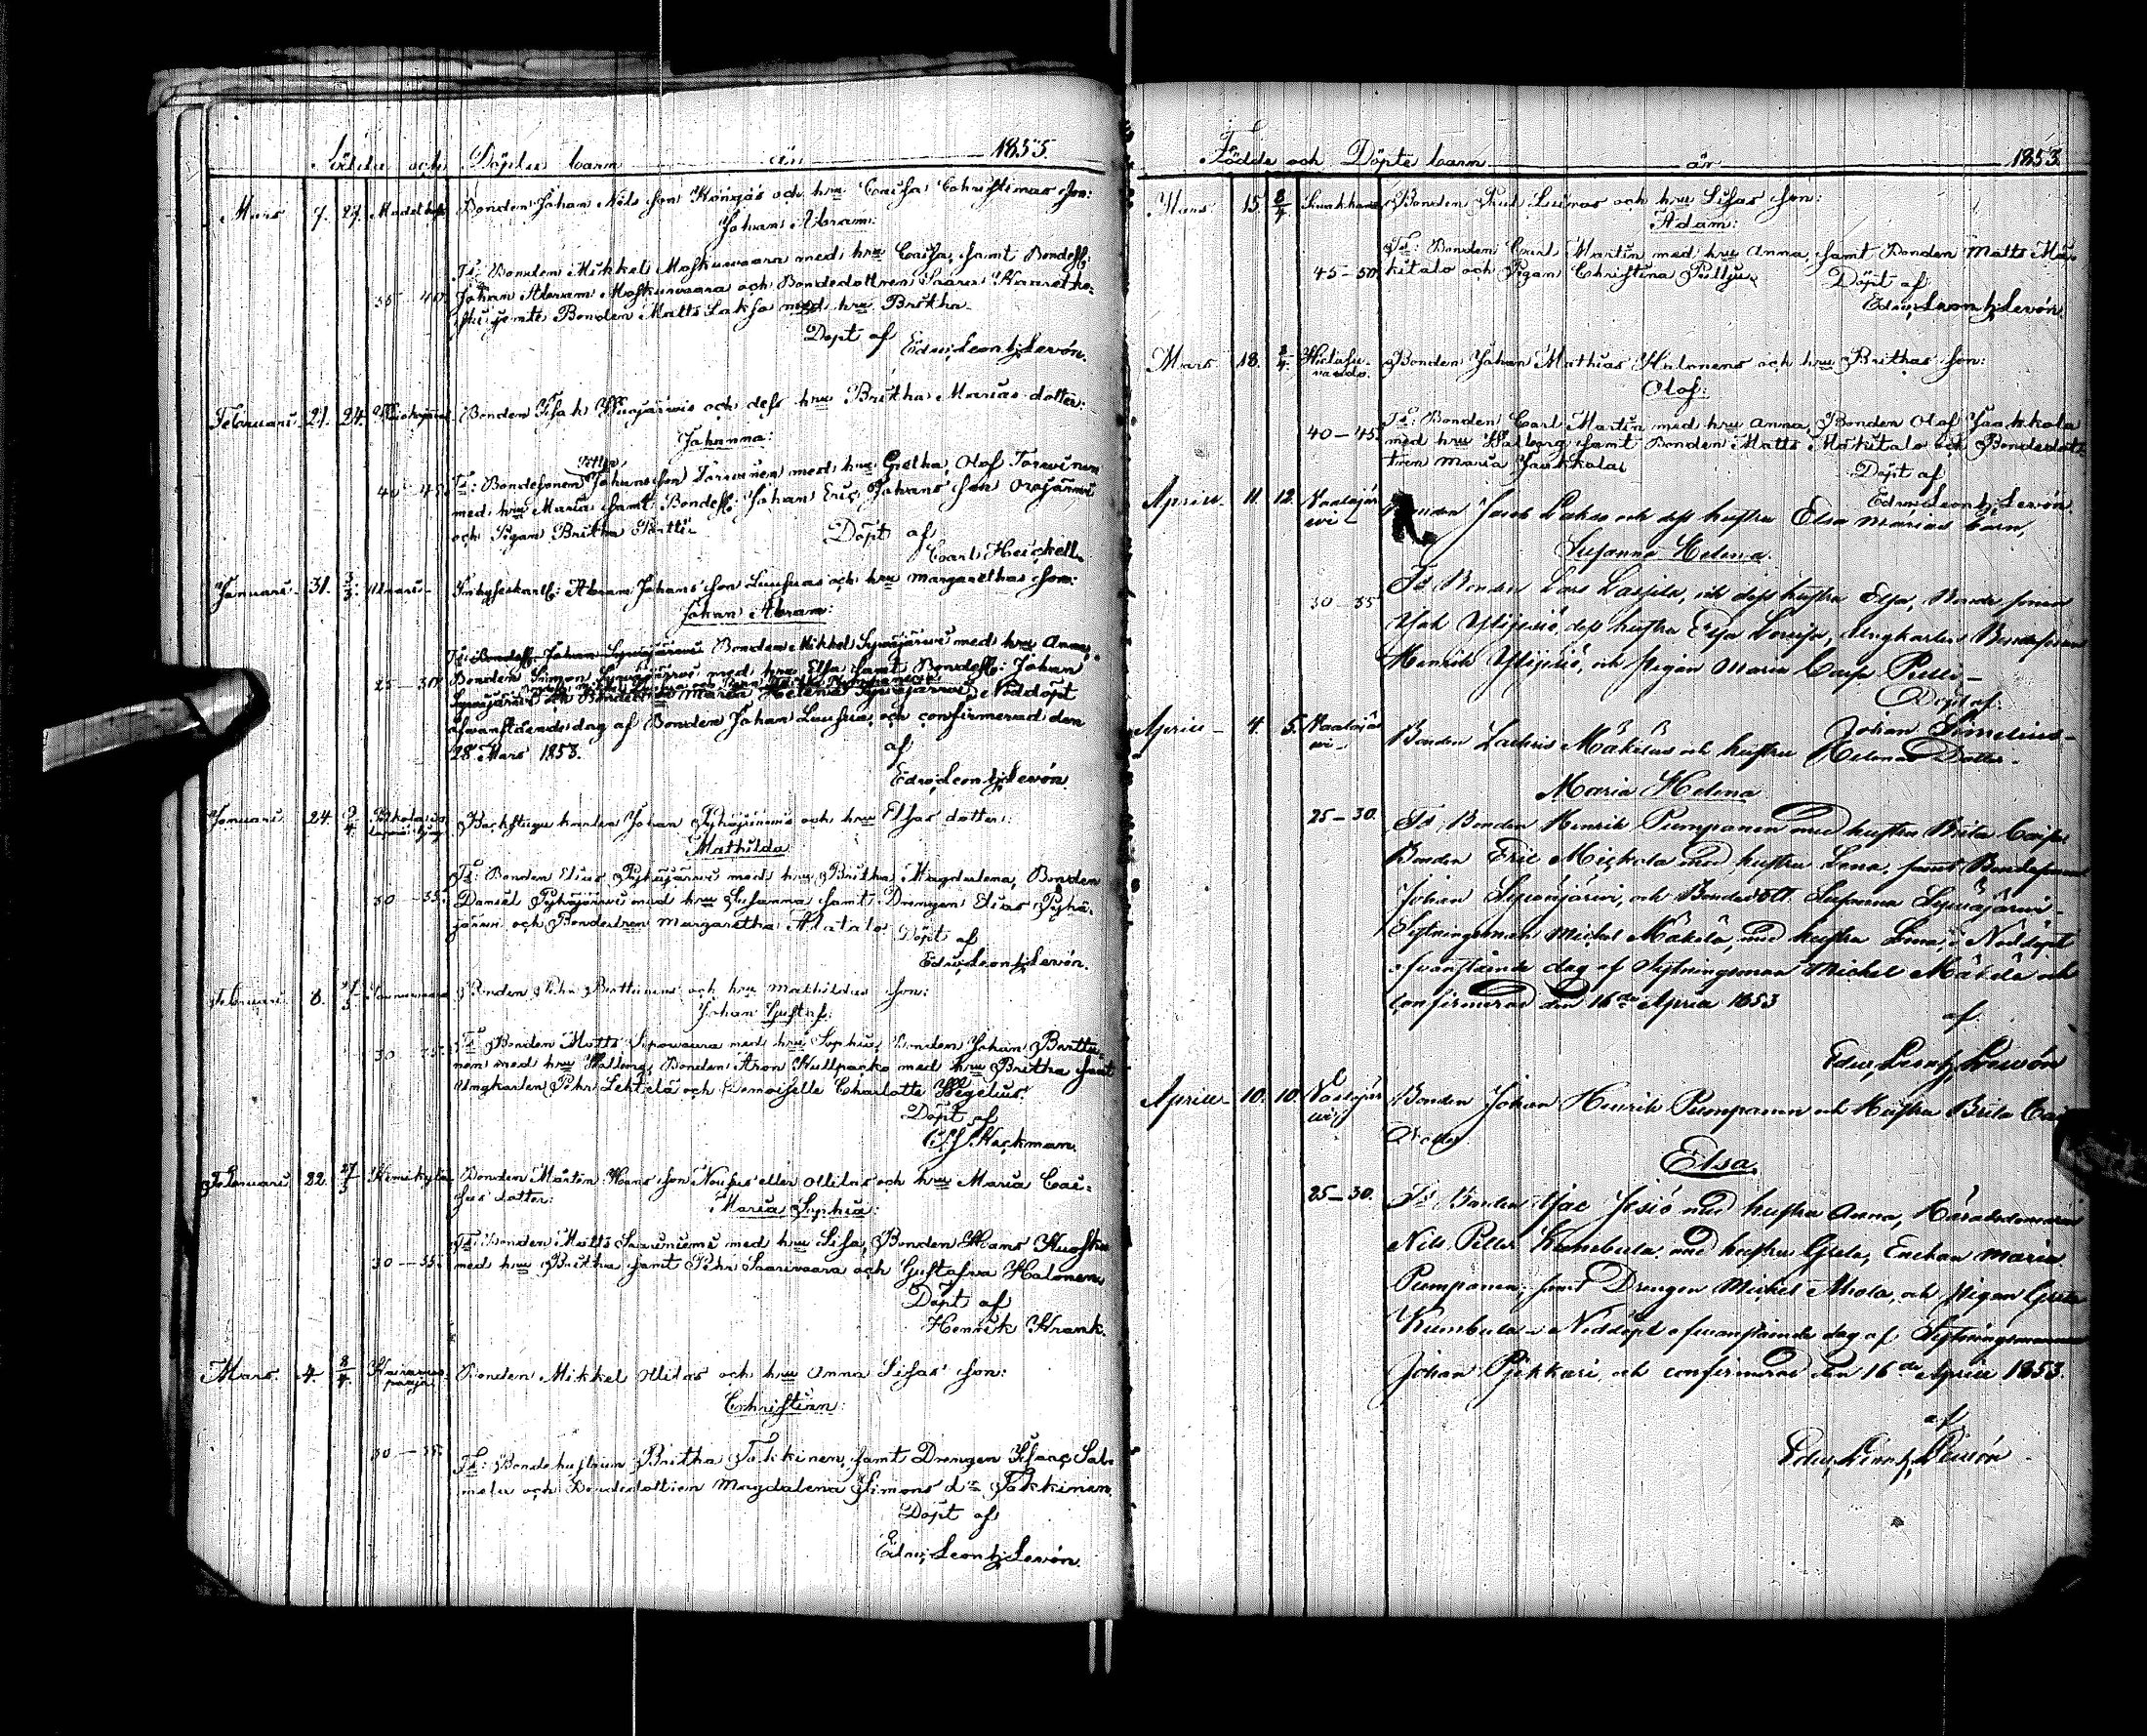 Födde och Döpte barn år 1853.
Mars 7. 27. Bonden Johan Nils son Köngäs och hru Caisa Christinas son:
Johan Abram:
Ts: Bonden Mikkel Moskuwaara med hru Caisa, samt Bondess:
35 40. Johan Abram Moskuwaara och Bondedottren Sara
jemte Bonden Matts Lakso med hru Britha.
Döpt af
Edw. Leontj. Levón.
Februari 21. 24. Bonden Isak och dess hru Britha Marias dotter:
Johanna:
40 45. Ts: Bondesonen Johansson Torwinen med hru Gretha, Olof Torwinen
med hru Maria samt Bondess: Johan Eric Johans son Orajärwi
och Pigan Britha Perttu
Döpt af
Carl Heickell.
Januari 31. 3/3 Abram Johans son Luusuas och hru Margarethas son:
Johan Abram:
Ts: Bondess: Johan Sywäjärwi Bonden Mikkel Sywäjärwi med hru Anna,
25 - 30. Bonden Simon Sywäjärwi med hru Elsa samt Bondess: Johan
Sywäjärwi och Bondedottren Maria Helena Sywäjärwi, Nöddöpt
ofwanstående dag af Bonden Johan Luusua, och confirmerad den
28 Mars 1853.
af
Edw. Leontj. Levón.
Januari 24. 3/4 Backstugukarlen Johan Pyhäjärwis och hru Elsas dotter:
Mathilda
Ts: Bonden Elias Pyhäjärwi med hru Britha Magdalena, Bonden
30 - 35. Daniel Pyhäjärwi med hru Susanna samt Drengen Elias Pyhä-
järwi och Bondedtren Margaretha Alatalo
Döpt af
Edw. Leontj. Levón.
Februari 8. Bonden Pehr Perttunens och hru Mathildas son:
Johan Gustaf:
30 35. Ts: Bonden Matts Sipowaara med hru Sophia, Bonden Johan Perttu-
nen med hru Walborg, Bonden Aron Kullpacko med hru Britha samt
Ungkarlen Pehr Lehtelä och Demoiselle Charlotte Wegelius.
Döpt af
Hackman.
Februari 22. 27/3 Kemikylä Bonden Mårten Hans son Nousus eller Ollilas och hru Maria Cai-
sas dotter:
Maria Sophia:
Ts: Bonden Matts Saunuums med hru Lisa, Bonden Hans
30 - 35. med hru Britha samt Pehr Saariwaara och Gustafwa Halonen
Döpt af
Henrik Krank.
Mars 4. 8/4 Bonden Mikkel Ollilas och hru Anna Lisas son:
Christian:
30 - 35. Ts: Bondehustrun Britha Takkinen, samt Drengen Isaac Sal-
mela och Bondedottren Magdalena Simons dr Takkinen.
Döpt af
Edw. Leontj. Levón.
Födde och Döpte barn år 1853
Mars 15. 8/4 Bonden Paul Luiros och hru Lisas son:
Adam:
Ts: Bonden Carl Martin med hru Anna, samt Bonden Matts Mä-
45 - 50. kitalo och Pigan Christina Pulju
Döpt af
Edw. Leontj. Levón.
Mars 18. 8/4 Bonden Johan Mathias Halonens och hru Brithas son:
Olof:
40 - 45. Ts: Bonden Carl Martin med hru Anna, Bonden Olof Jaakkola
med hru Walborg samt Bonden Matts Mäkitalo och Bondedott-
tren Maria Jaakkola
Döpt af
Edw. Leontj. Levón.
April 11. 12. Waalajär-
wi Bonden Jacob Lakso och dess hustru Elsa Marias barn,
Susanna Helena.
30 - 35 Ts Bonden Lars Lassila, och dess hustru Elsa, Bonde sonen
Isak Ylijesiö, dess hustru Elsa Lowisa, Ungkarlen Bondesonen
Henrik Ylijesiö, och Pigan Maria Caisa Pelli
Döpt af
Johan Simelius
April 4. 5. Waalajär-
wi Bonden Zachris Mäkiläs och hustru Helenas Dotter
Maria Helena
25 - 30. Ts: Bonden Henrik Pumpanen med hustru Brita Caisa,
Bonden Eric Mickola med hustru Lena, samt Bondesonen
Johan Sywäjärwi, och Bondedott. Susanna Sywäjärwi
Sytningsman Michel Mäkelä med hustru Lena - Nöddöpt
ofvanstående dag af Sytningsman Michel Mäkelä och
confirmerad den 16de April 1853
af
Edw. Leontj. Levón
April 10. 10. Waalajär
wi Bonden Johan Henrik Pumpanen och Hustru Brita Cai
Dotter
Elsa.
25 - 30. Ts Bonden Isac Jesiö med hustru Anna, Häradsdomaren
Nils Peter Kumbula med hustru Greta, Enekan Maria
Pumpanen, samt Drengen Michel Ahola, och Pigan Greta
Kumbula - Nöddöpt ofwanstående dag af Sytningsmannen
Johan Pikkari, och confirmerad den 16de April 1853.
af
Edw. Leontj. Levón